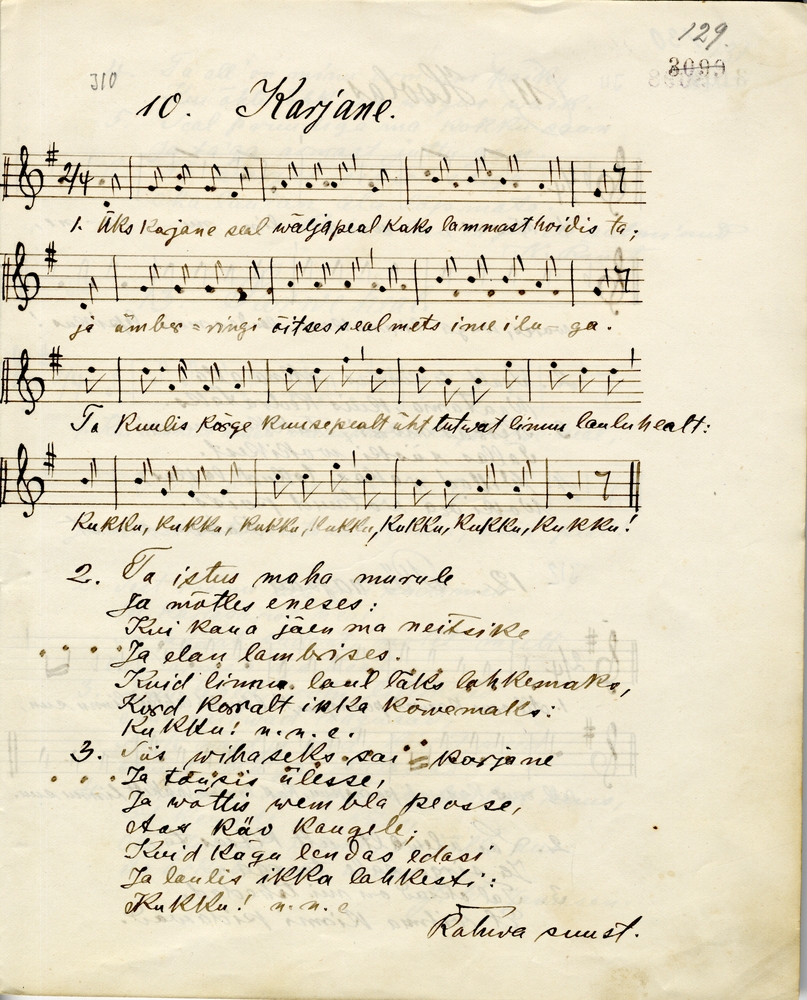 129.
3099
310
10. Karjane.
2/4
1. Üks karjane seal wäljapeal kaks lammast hoidis ta;
ja ümber-ringi õitses seal mets ime ilu ga.
Ta kuulis kõrge kuusepealt üht tutwat linnu lauluhealt:
Kukku, kukku, kukku, kukku, kukku, kukku, kukku!
2. Ta istus maha murule
Ja mõtles eneses:
Kui kaua jäen ma neitsike
Ja elan lambrises.
Kuid linnu laul läks lahkemaks,
Kord korralt ikka kõwemaks:
Kukku! n. n. e.
3. Siis wihaseks sai karjane
Ja tõusis ülesse,
Ja wõttis wembla peosse,
Aas käo kaugele;
Kuid kägu lendas edasi
Ja laulis ikka lahkesti:
Kukku! n. n. e
Rahwa suust.